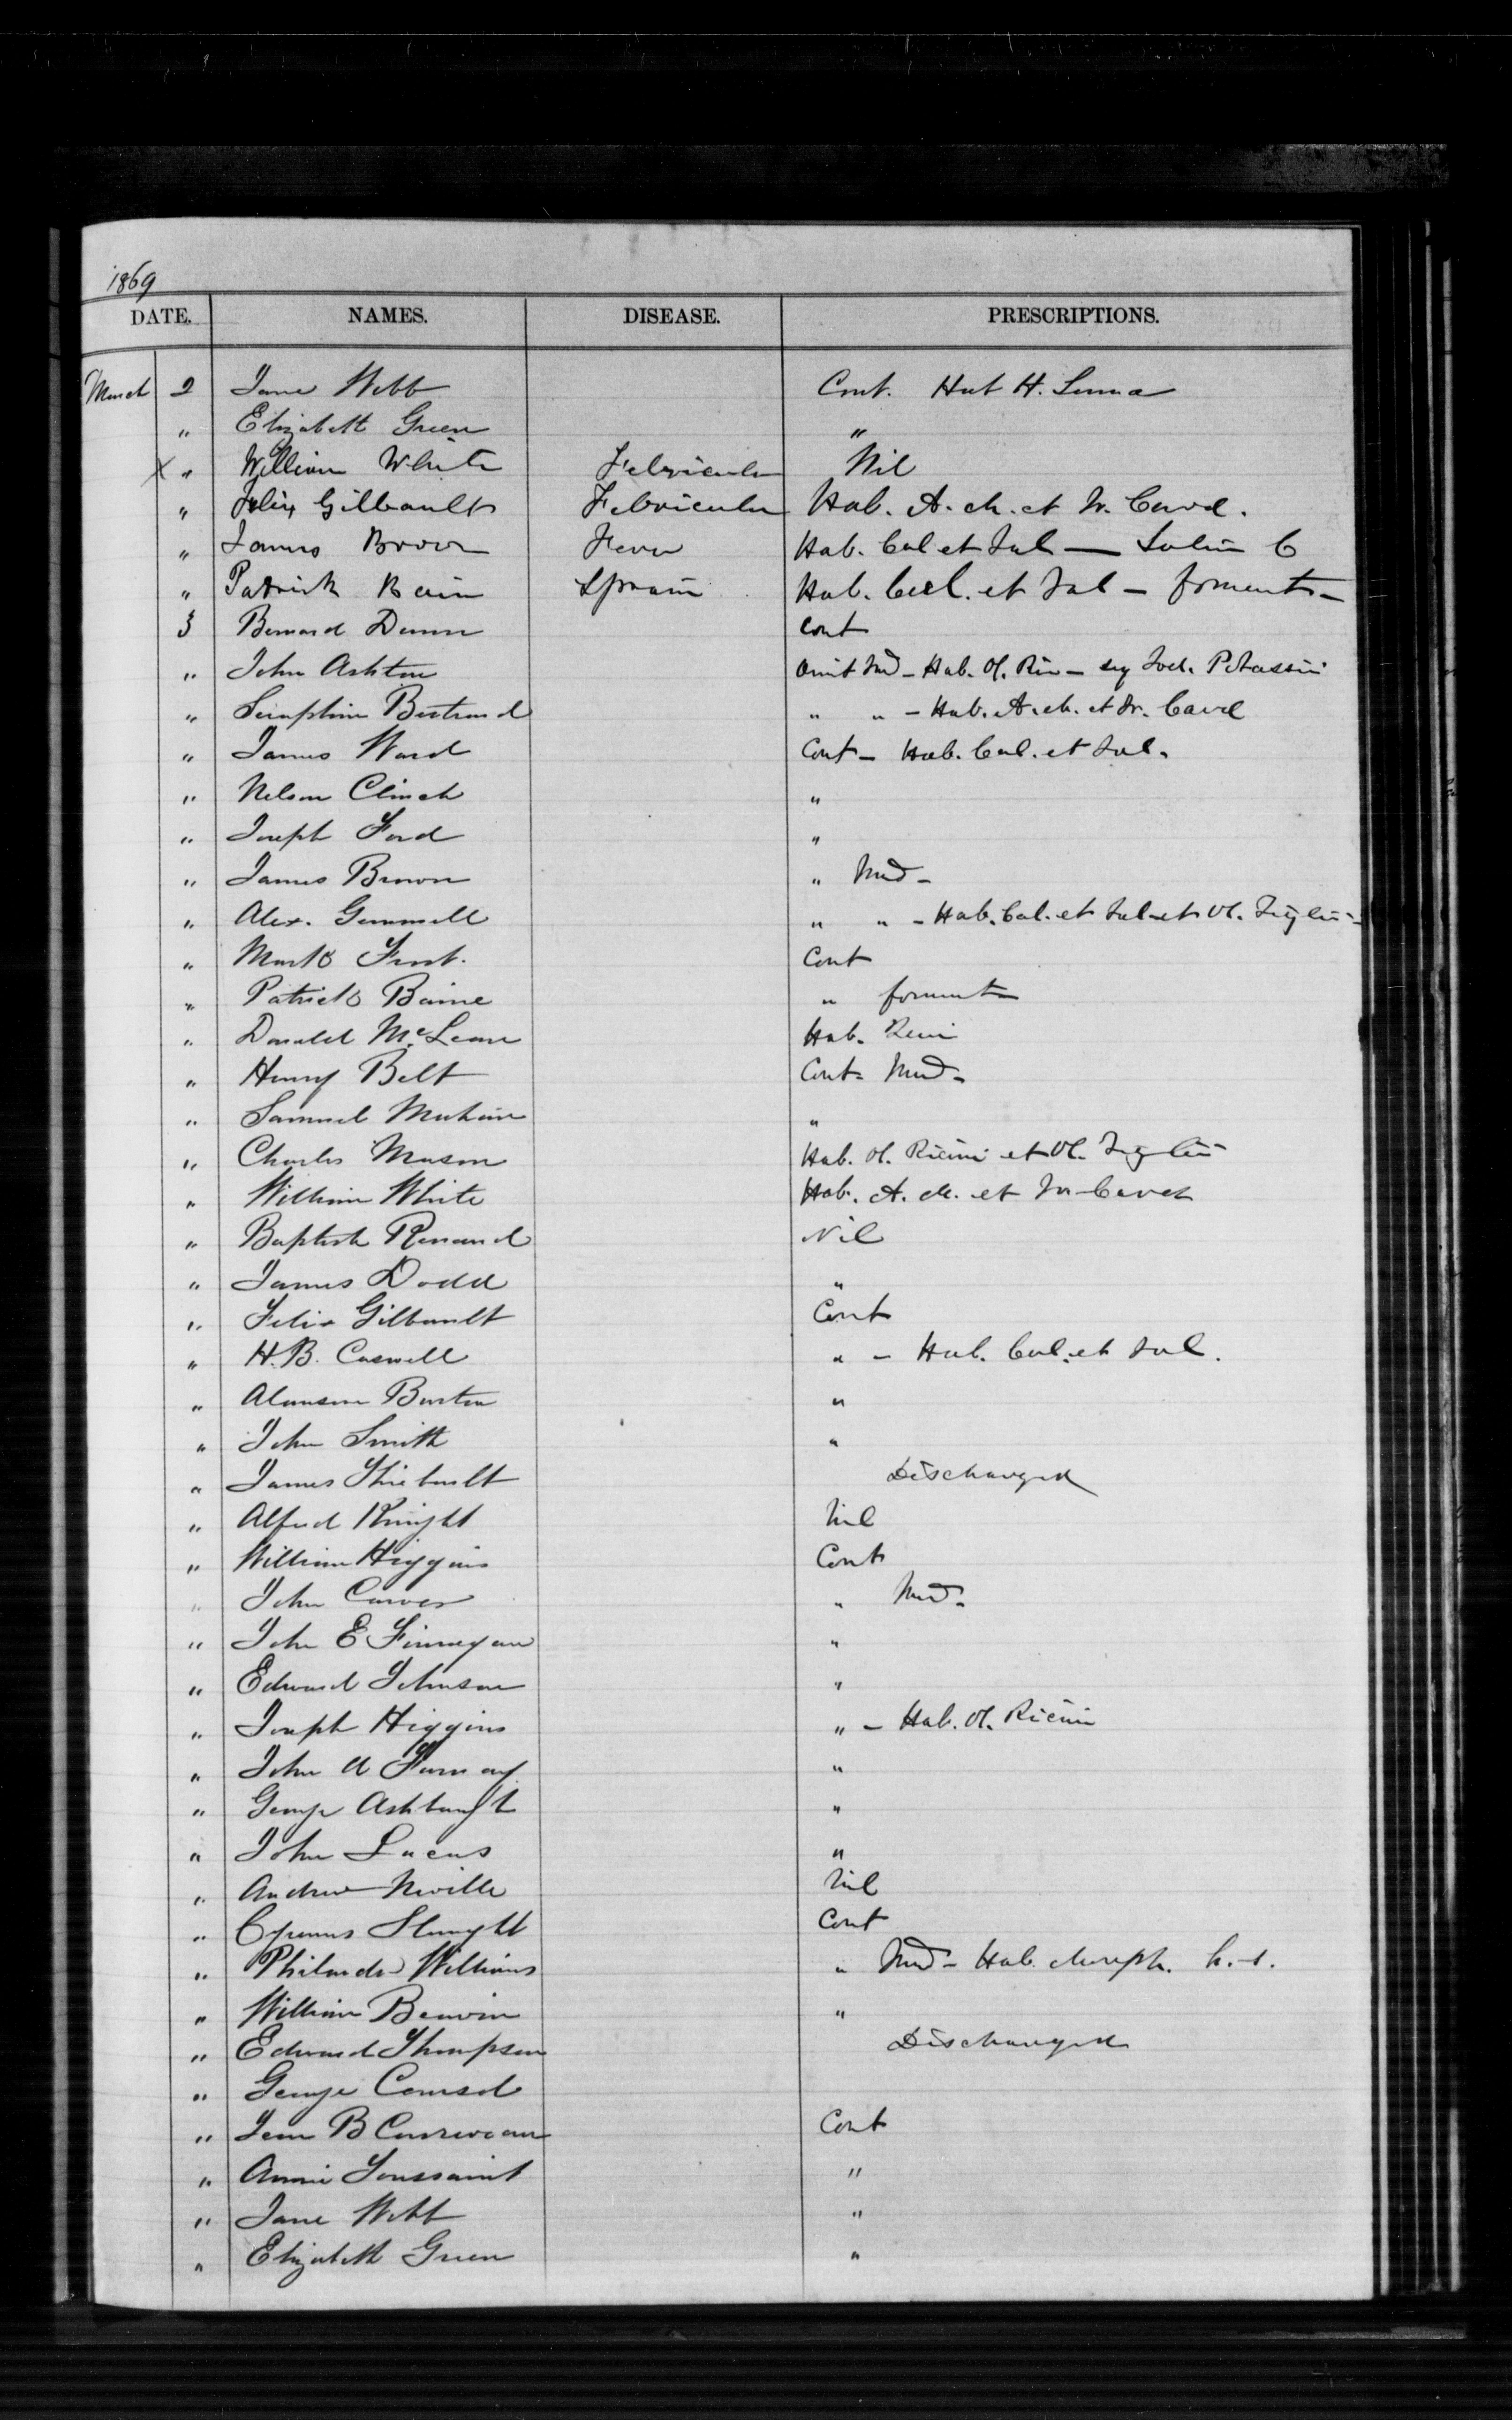 1869
DATE. NAMES. DISEASE. PRESCRIPTIONS.
March 2 Jane Webb Cont. Hab H. Senna
" Elizabeth Green "
X " William White Febricula Nil
" Felix Gilbault Febricula Hab. A. ch. et Tr. Card.
" James Brown Fever Hab. Cal et Jal — Salin C
" Patrick Bain Sprain Hab. Cal. et Jal — foments —
3 Bernard Dunn Cont
" John Ashton Omit Med — Hab. Ol. Ric — Iod. Potassii
" Seraphim Bertrand " " — Hab. A. ch. et Tr. Card
" James Ward Cont — Hab. Cal. et Jal.
" Nelson Clinch "
" Joseph Ford "
" James Brown " Med —
" Alex. Gemmell " " — Hab. Cal. et Jal et Ol. Tiglii —
" Mark Frost. Cont
" Patrick Baine " foments
" Donald McLean Hab.
" Henry Belt Cont — Med —
" Samuel "
" Charles Mason Hab. Ol. Ricini et Ol. Tiglii
" William White Hab. A. ch. et Tr Card
" Baptiste Renaud Nil
" James Dodd "
" Felix Gilbault Cont
" H. B. Caswell " — Hab. Cal. et Jal.
" Alanson Burton "
" John Smith "
" James Thiebault Discharged
" Alfred Knight Nil
" William Higgins Cont
" John Carver " Med —
" John E Finnegan "
" Edward Johnson "
" Joseph Higgins " — Hab. Ol. Ricini
" John A "
" George Ashbaugh "
" John Lucas "
" Andrew Neville Nil
" Cyrenus Slaught Cont
" Philander Williams " Med — Hab. Morph. h. s.
" William "
" Edward Thompson Discharged
" George Conrad
" Jean B Cont
" Annie Toussaint "
" Jane Webb "
" Elizabeth Green "